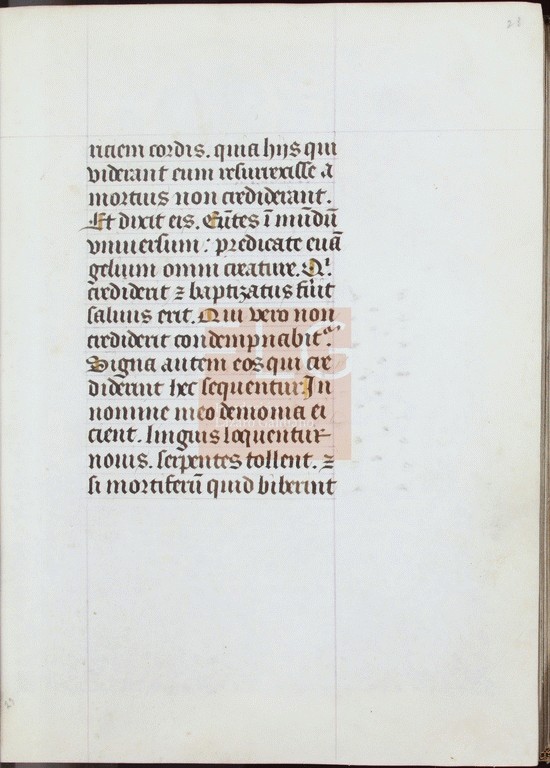 21
riciem cordis. quia hijs qui
viderant eum resurrexisse a
mortuis non crediderant.
Et dixit eis. Eūtes ī mūdū
vniuersum : predicate euā
gelium omni creature. Qⁱ
crediderit ⁊ baptizatus fūit
saluus erit. Qui vero non
crediderit condempnabitᵘʳ.
Signa autem eos qui cre
diderint hec sequentur. In
nomine meo demonia ei
cient. linguis loquentur
nouis. serpentes tollent. ⁊
si mortiferū quid biberint
FLG